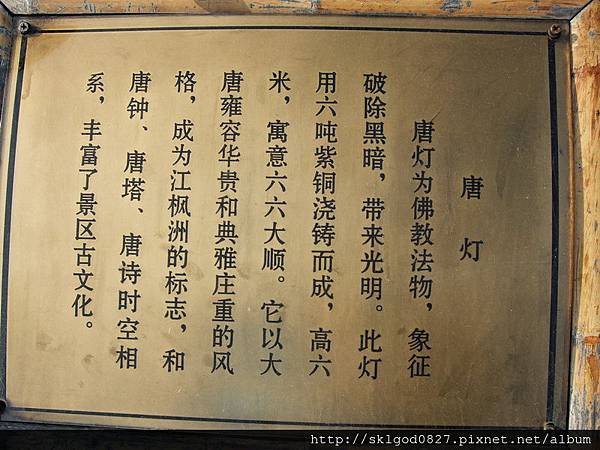 唐灯
唐灯为佛教法物，象征
破除黑暗，带来光明。此灯
用六吨紫铜浇铸而成，高六
米，寓意六六大顺。它以大
唐雍容华贵和典雅庄重的风
格，成为江枫洲的标志，和
唐钟、唐塔、唐诗时空相
系，丰富了景区古文化。
http://sklgod0827.pixnet.net/album